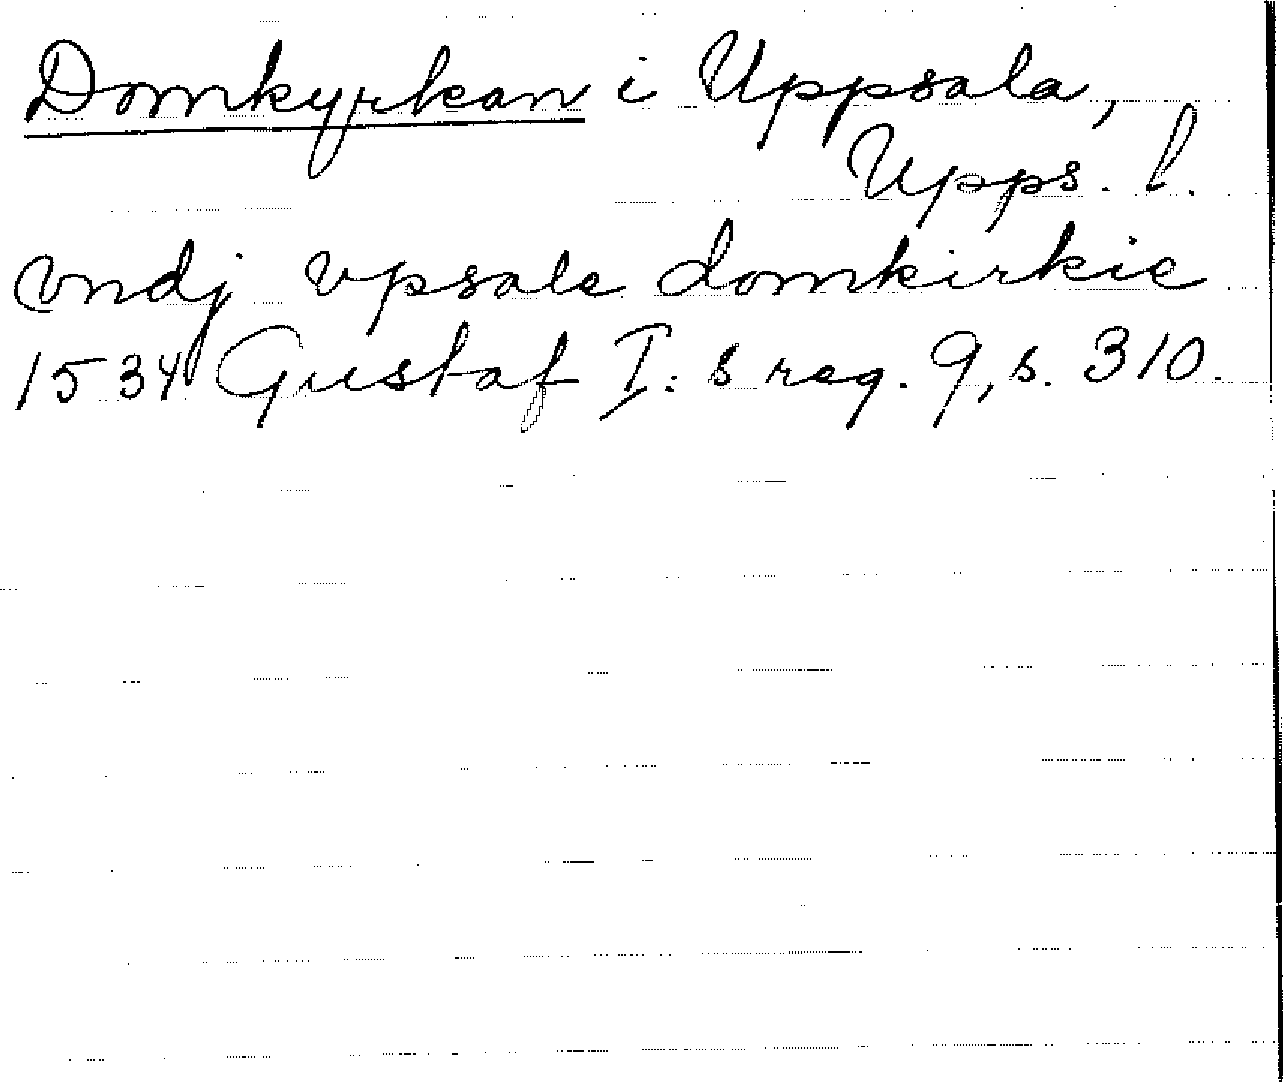 Domkyrkan i Uppsala,
Upps. l.
vndj vpsale domkirkie
1534 Gustaf I:s reg. 9, s. 310.